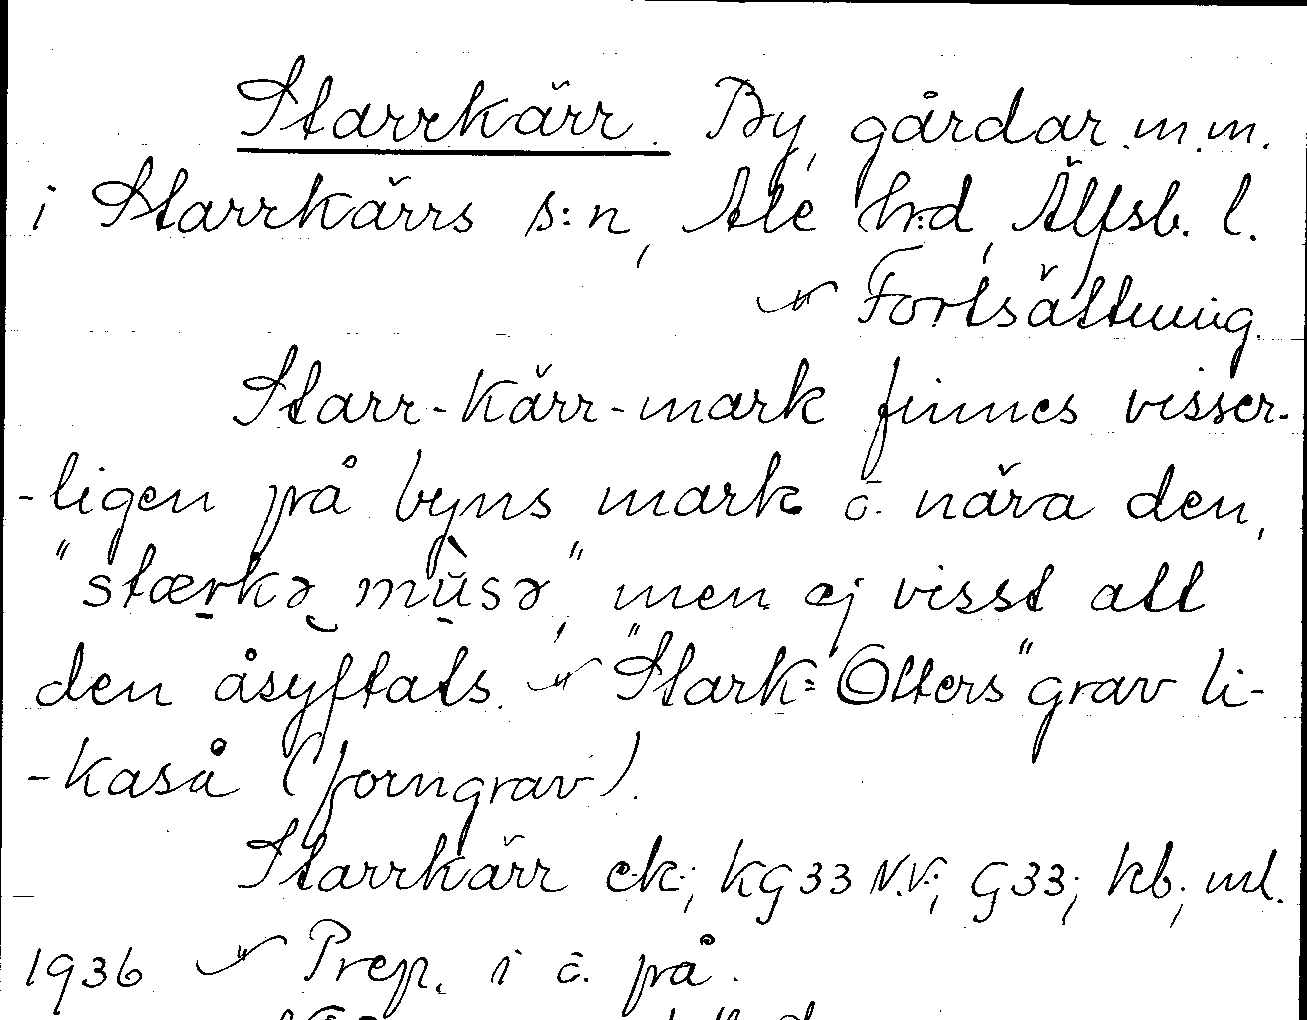 Starrkärr. By, gårdar m.m.
i Starrkärrs s:n, Ale hrd, Älfsb. l.
Fortsättning.
Starr-kärr-mark finnes visser-
-ligen på byns mark o. nära den,
"stærkə mùsə", men ej visst att
den åsyftats. "Stark=Otters" grav li-
-kaså (forngrav).
Starrkärr ek; KG33 N.V.; G33; kb; ml.
1936 Prep. i o. på.